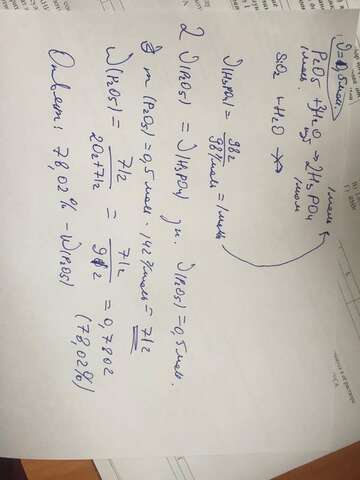 ν=0,5моль.
P₂O₅ + 3H₂O → 2H₃PO₄
1моль. изб 1моль
SiO₂ + H₂O ↛
ν(H₃PO₄) = 98г / 98г/моль = 1моль
2 ν(P₂O₅) = ν(H₃PO₄) ; ν(P₂O₅) = 0,5 моль.
m (P₂O₅) = 0,5 моль · 142 г/моль = 71г
W(P₂O₅) = 71г / 20г+71г = 71г / 91г = 0,7802 (78,02%)
Ответ: 78,02% – W(P₂O₅)